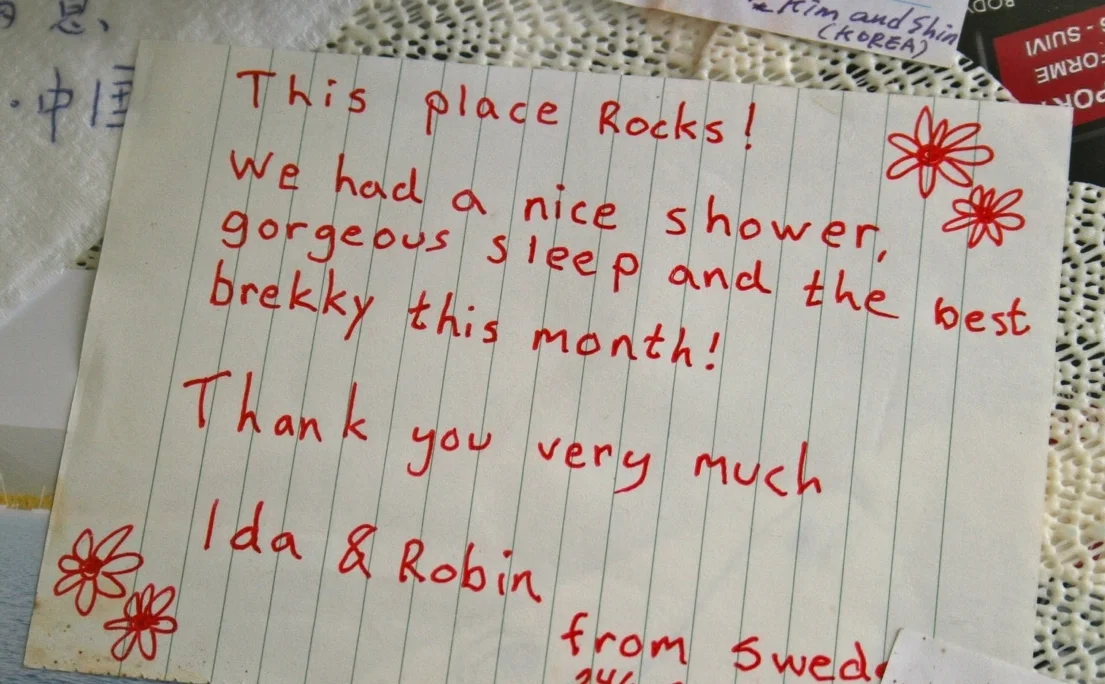 中国
Kim and Shin
(KOREA)
BODY
SUIVI
FORME
This place Rocks!
We had a nice shower,
gorgeous sleep and the best
brekky this month!
Thank you very much
Ida & Robin
from Swed